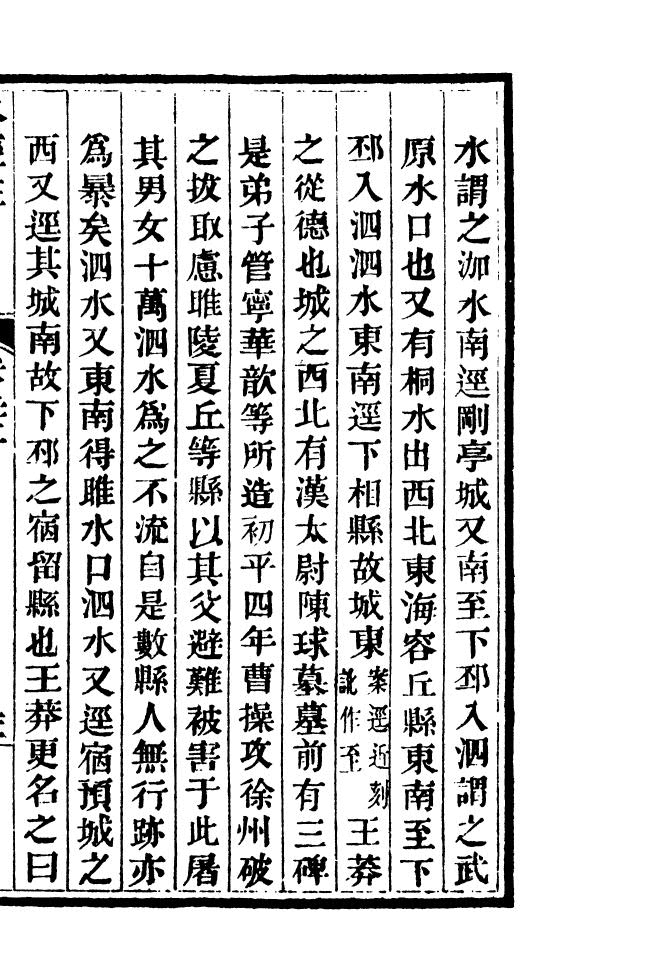 水謂之泇水南逕剛亭城又南至下邳入泗謂之武
原水口也又有桐水出西北東海容丘縣東南至下
邳入泗泗水東南逕下相縣故城東案逕近刻訛作至王莽
之從德也城之西北有漢太尉陳球墓墓前有三碑
是弟子管寧華歆等所造初平四年曹操攻徐州破
之拔取慮睢陵夏丘等縣以其父避難被害于此屠
其男女十萬泗水爲之不流自是數縣人無行跡亦
爲暴矣泗水又東南得睢水口泗水又逕宿預城之
西又逕其城南故下邳之宿留縣也王莽更名之曰